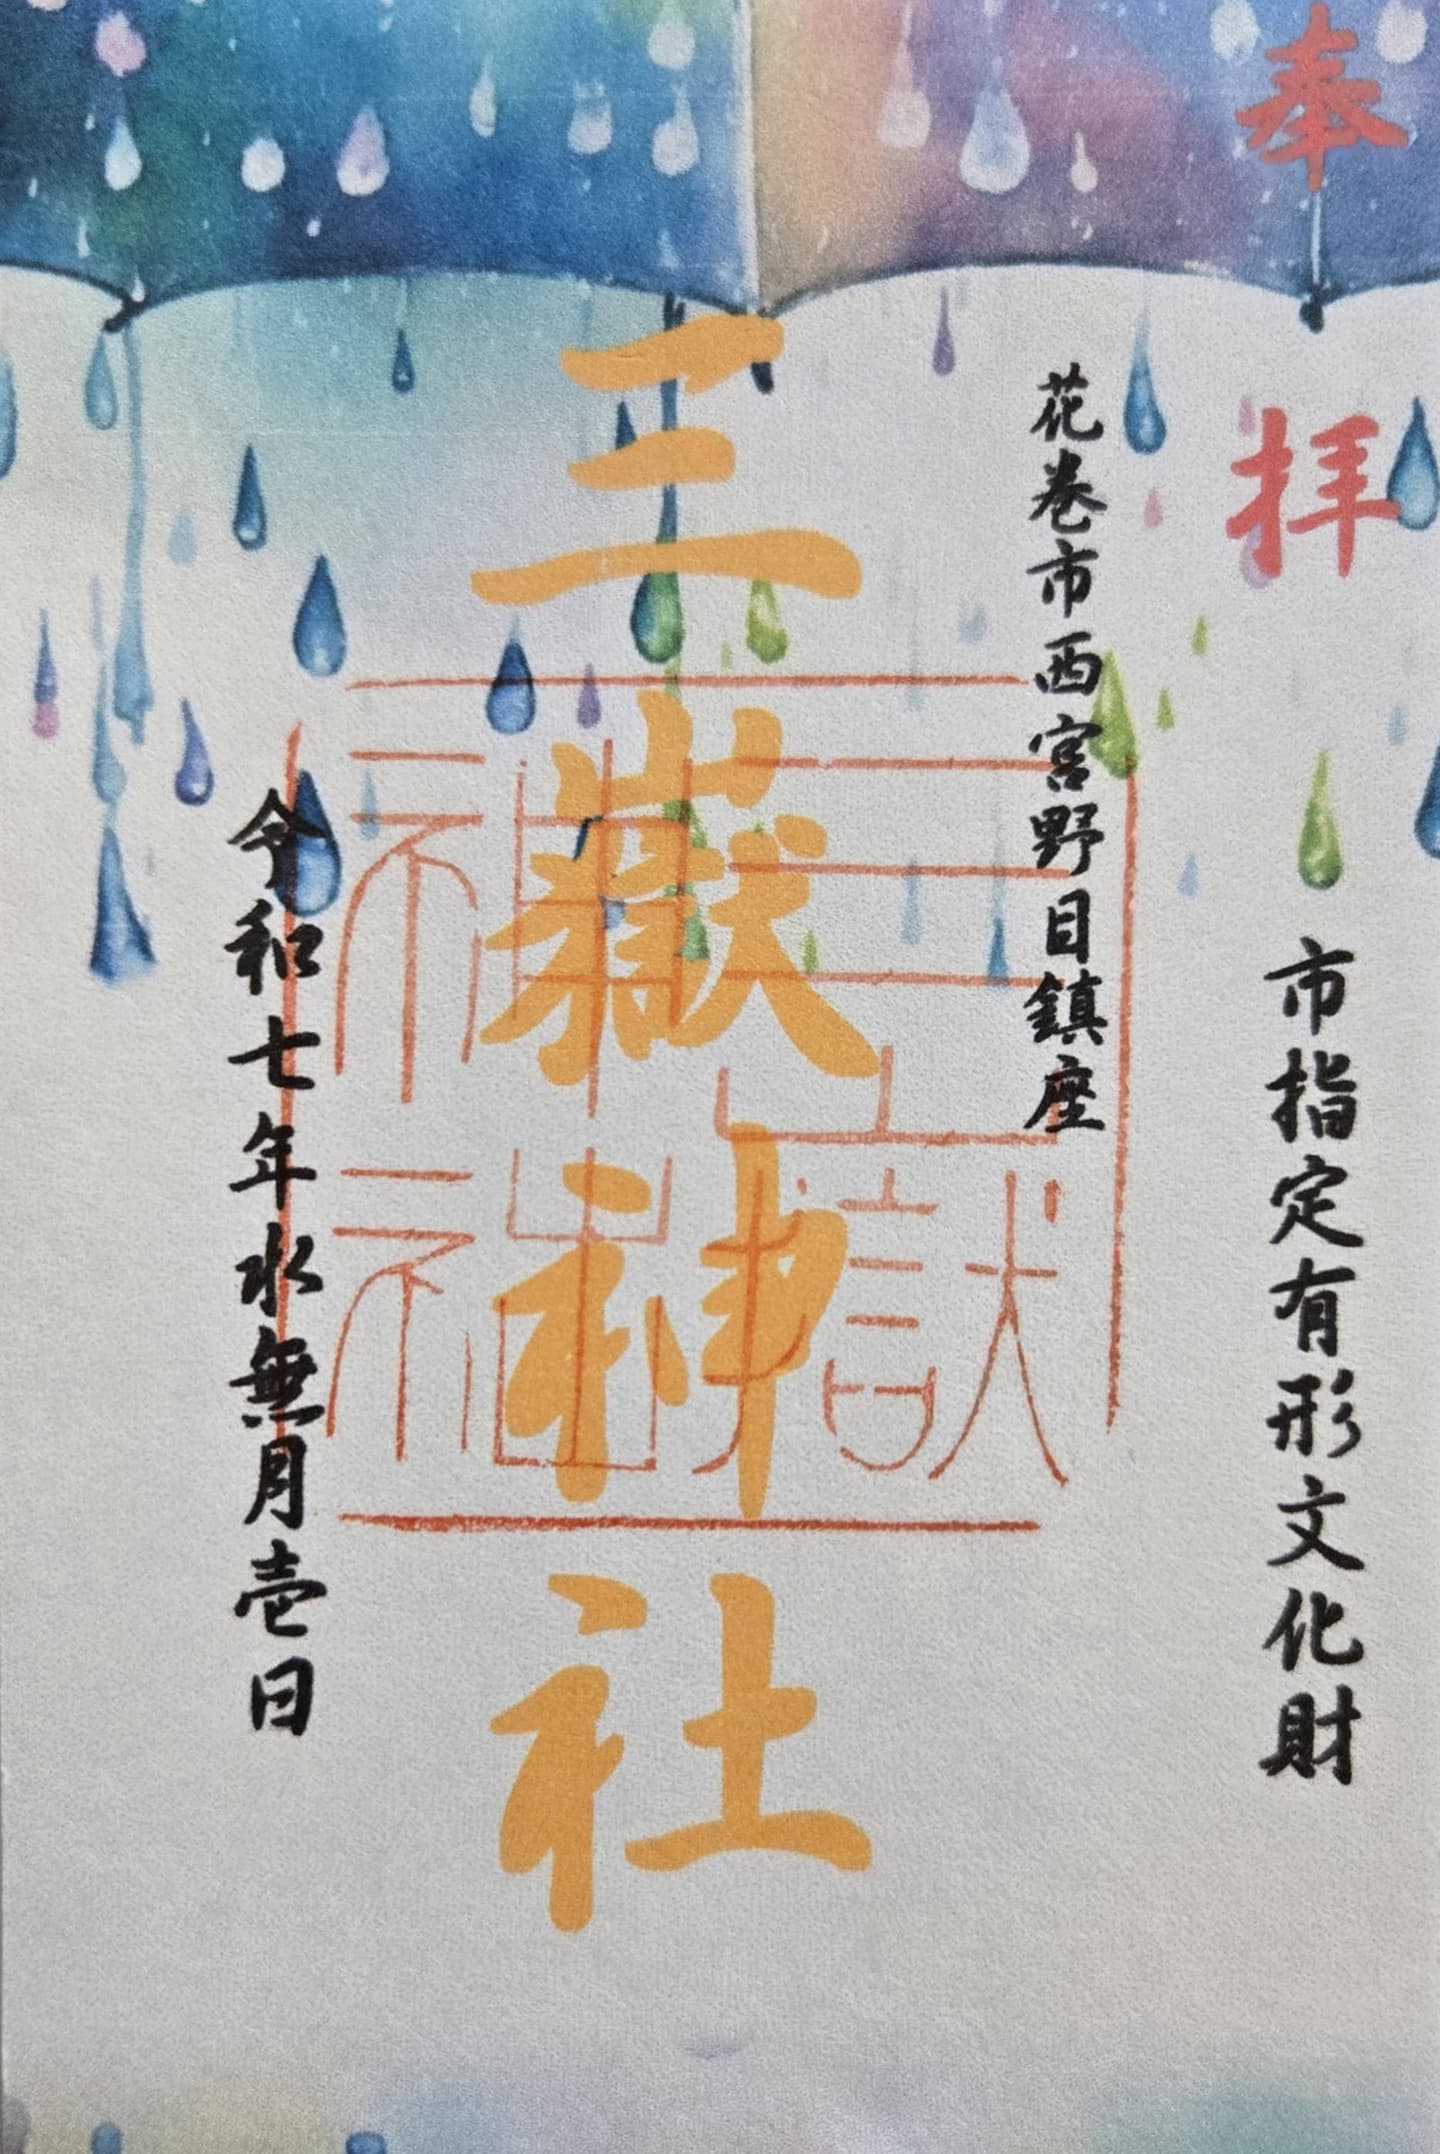 奉拝
市指定有形文化財
花巻市西宮野目鎮座
三嶽神社
三嶽神社
令和七年水無月壱日